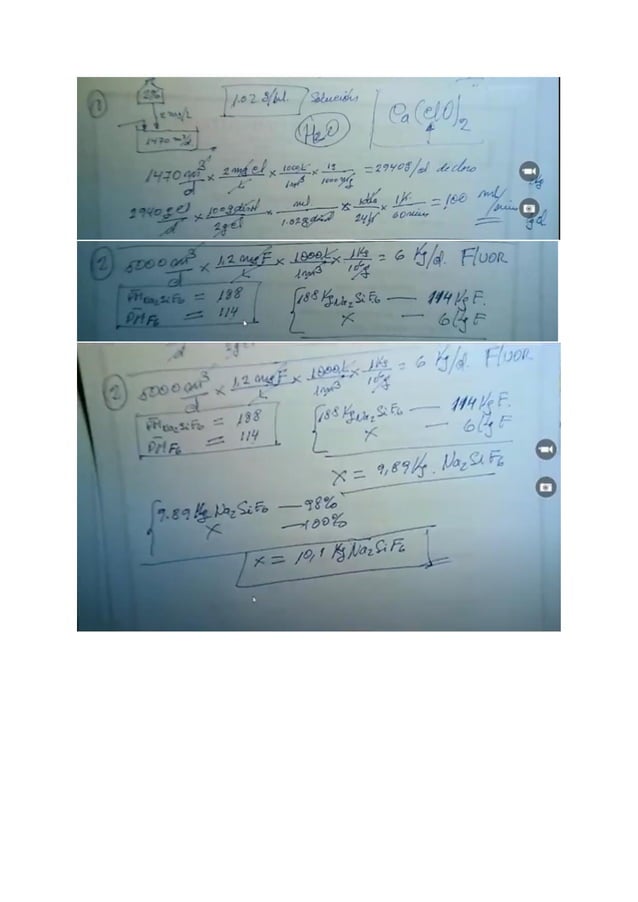 ①
2%
2 mg/L
1470 m³/d
1.02 g/ml Solución
H2O
Ca(ClO)2
1470 m³/d × 2 mg Cl/L × 1000 L/1 m³ × 1g/1000 mg = 2940 g/d de cloro
2940 g Cl/d × 100 g disol/2g Cl × ml/1.02 g disol × 1 día/24 h × 1 h/60 min = 100 ml/min
②
5000 m³/d × 1,2 mg F/L × 1000 L/1 m³ × 1 Kg/10⁶ mg = 6 Kg/d. FLUOR
PM Na2SiF6 = 188
PM F6 = 114
188 Kg Na2SiF6 — 114 Kg F.
X — 6 Kg F
②
5000 m³/d × 1,2 mg F/L × 1000 L/1 m³ × 1 Kg/10⁶ mg = 6 Kg/d. FLUOR
PM Na2SiF6 = 188
PM F6 = 114
188 Kg Na2SiF6 — 114 Kg F.
X — 6 Kg F
X = 9,89 Kg. Na2SiF6
9.89 Kg Na2SiF6 — 98%
X — 100%
X = 10,1 Kg Na2SiF6